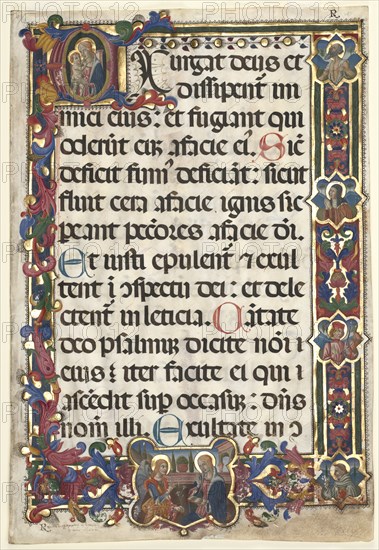 Exurgat deus et
dissipent̄ ini
mici eius: et fugiant qui
oderūt eū afacie ei⁹. Sic̄
deficit fum⁹ deficiāt: sicut
fluit cera afacie ignis sic
pereant peccōres afacie dei.
Et iusti epulent̄ et exul
tent ī cōspectu dei: et dele
ctent̄ in leticia. Cātate
deo psalmuȝ dicite noī i
eius: iter facite ei qui
ascēdit sup̄ occasuȝ: dn̄s
nom̄ illi. Exultate in ↄ